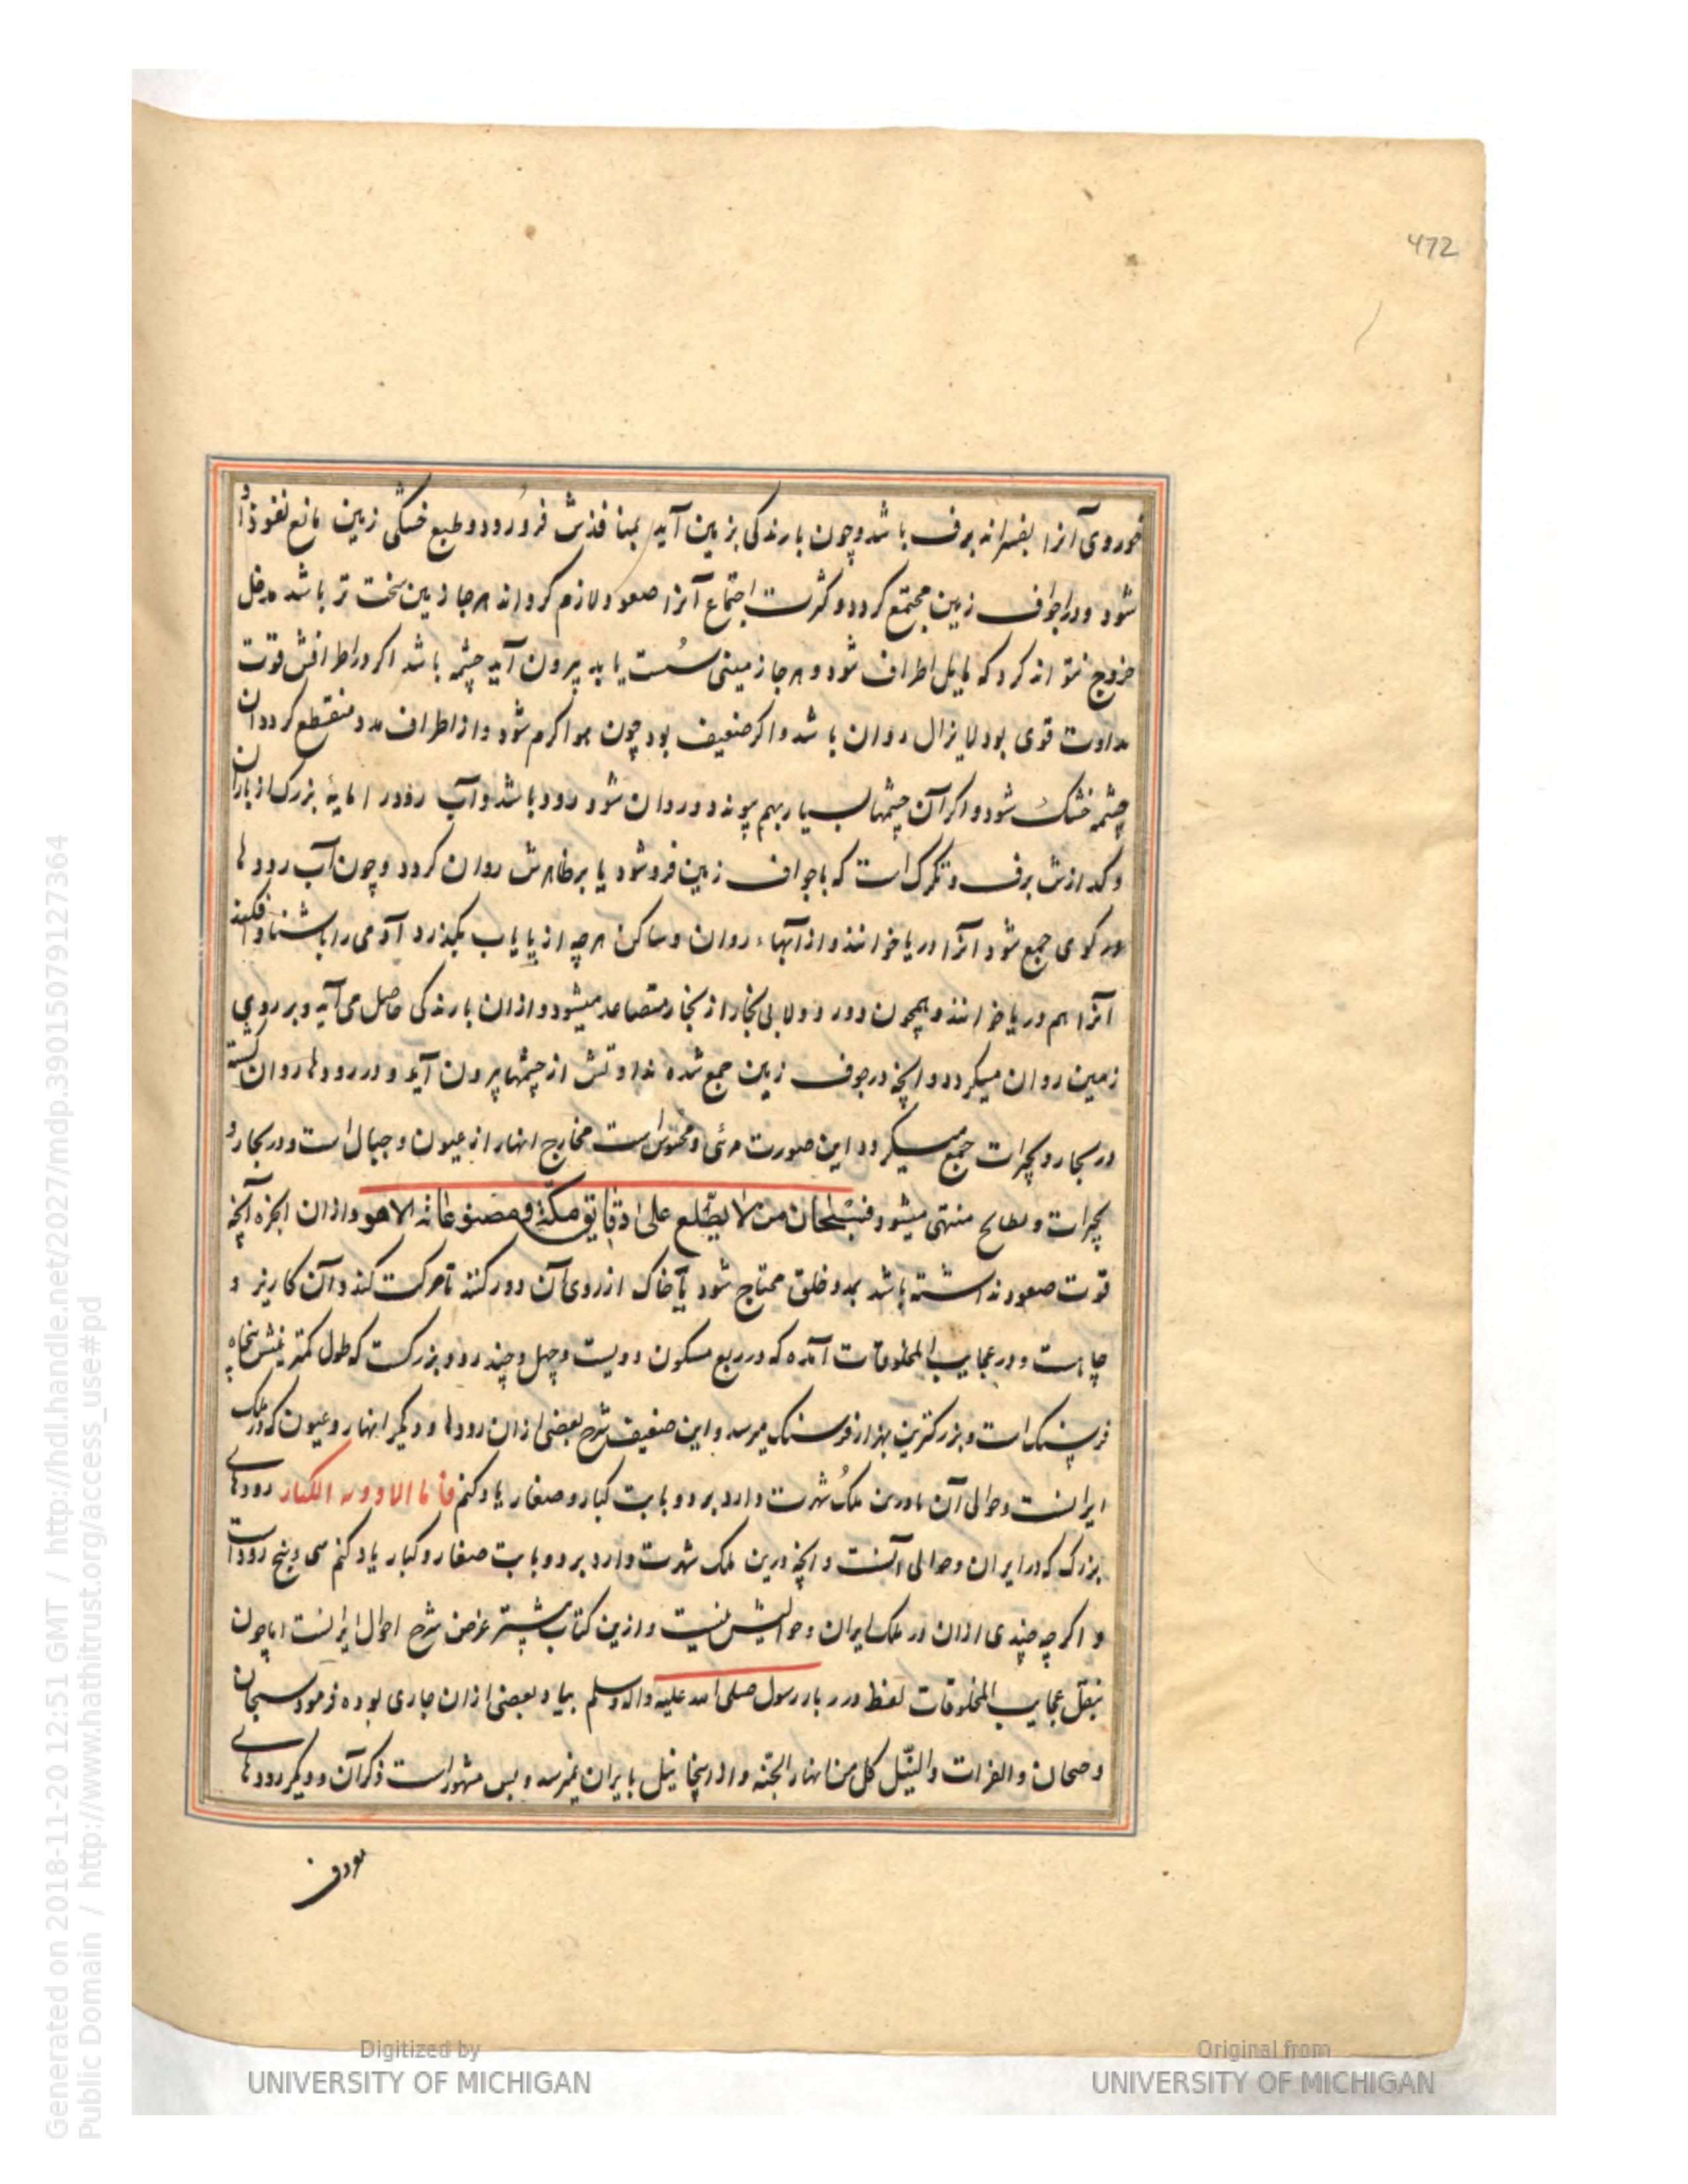 472
خوردی آنرا بفسراند برف باشد و چون بارندگی بزمین آید بمنافذش فرو رود و طبع خشکی زمین مانع نفوذ او
شود و در اجواف زمین مجتمع کردد و کثرت اجتماع آنرا صعود لازم کرداند هرجا زمین سخت تر باشد مدخل
خروج نتواند کرد که مایل اطراف شود و هرجا زمینی سست یابد بیرون آید چشمه باشد اکر در اطرافش قوت
نداوت قوی بود لایزال روان باشد و اکر ضعیف بود چون هوا کرم شود و از اطراف مدد منقطع کردد آن
چشمه خشک شود و اکر آن چشمها بسیار بهم پیوندد و روان شود رود باشد و آب رود را مایهٔ بزرک از باران
و کدازش برف و تکرک است که باجواف زمین فرو شود یا بر ظاهرش روان کردد و چون آب رودها
در کوی جمع شود آنرا دریا خوانند و از آبهاء روان و ساکن هرچه از پایاب بکذرد آدمی را باشناه افکند
آنرا هم دریا خوانند و همچون دور دولابی بخار از بخار متصاعد میشود و ازان بارندکی حاصل می آید و بر روی
زمین روان میکردد و آنچه در جوف زمین جمع شده نداوتش از چشمها بیرون آید و در رودها روان کشته
در بحار و بحیرات جمع میکردد این صورت مرئی و محسوس است مخارج انهار از عیون و جبال است و در بحار و
بحیرات و بطایح منتهی میشود فسبحان من لا یطلع علی دقایق حکمته و مصنوعاته الا هو و ازان ابخره آنچه
قوت صعود نداشته باشد بمدد خلق محتاج شود تا خاک از روی آن دور کنند تا حرکت کند و آن کاریز و
چاهست و در عجایب المخلوقات آمده که در ربع مسکون دویست و چهل و چند رود بزرکست که طول کمترینش پنجاه
فرسنک است و بزرکترین بهزار فرسنک میرسد و این ضعیف شرح بعضی ازان رودها و دیکر انهار و عیون که در ملک
ایرانست و حوالی آن و درین ملک شهرت دارد بر دو بابت کبار و صغار یاد کنم فاما الاودیه الکبار رودهای
بزرک که در ایران و حوالی آنست و آنچه درین ملک شهرت دارد بر دو بابت صغار و کبار یاد کنم سی و پنج رود است
و اکرچه چندی ازان در ملک ایران و حوالیش نیست و ازین کتاب بیشتر غرض شرح احوال ایرانست اما چون
بنقل عجایب المخلوقات لفظ درر بار رسول صلی الله علیه واله وسلم بیاد بعضی ازان جاری بوده فرمود سیحان
و جیحان و الفرات و النیل کل من انهار الجنه و از اینجا نیل بایران نمیرسد و بس مشهور است ذکر آن و دیکر رودهای
Generated on 2018-11-20 12:51 GMT / http://hdl.handle.net/2027/mdp.39015079127364
Public Domain / http://www.hathitrust.org/access_use#pd
Digitized by
UNIVERSITY OF MICHIGAN
Original from
UNIVERSITY OF MICHIGAN